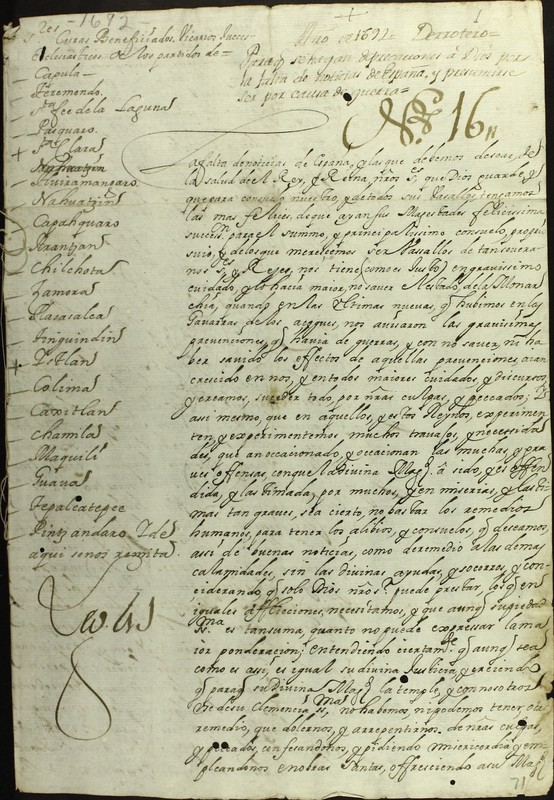 -1692-
Sres
Curas Beneficiados, Vicarios Jueces
eclesiasticos de los partidos de=
Capula
Teremendo.
Sta fee de la Laguna
Pasquaro.
Sta Clara
Tiuiramangaro.
Nahuatzin
Capahquaro
Aranjan
Chilchota
Zamora
Tlasasalca
Tinguindin
Istlan
Colima
Caxitlan
Chamila
Maquili
Guaua
Tepalcatepec
Pintzandaro Y de
aqui se nos remita.
Año de 1692= Derrotero=
Para q se hagan deprecaciones a Dios por
la falta de noticias de España, y presumirse
ser por causa de guerra=
No 16
La falta de noticias de España, y las que debemos desear, de
la salud de el Rey, y Reina, nros Ses, que Dios guarde, y
que para consuelo nuestro, y de todos sus Vasallos tengamos
las mas felices, de que ayan sus Magestades felicissima
succesn para el summo, y principalissimo consuelo, propio
suio, y de los que merecemos ser Vasallos de tan sobera-
nos Ses y Reyes, nos tiene, como es Justo, en gravissimo
cuidado, y lo hacia maior, no saver el estado, de la Monar
chia, quando en las Vltimas nuevas, q hubimos en los
de los azogues, nos avisaron las gravissimas
prevenciones, q havia de guerras, y con no saver, ni ha
ber savido los effectos de aquellas prevenciones, aian
crecido en nos, y en todos maiores cuidados, y discursos,
y creamos, suceder todo, por nras culpas, y peccados; Y
assi mesmo, que en aquellos, y estos Reynos, experimen
ten, y experimentemos, muchos travajos, y necessida
des, que an occacionado, y occacionan las muchas, y gra
ves offensas, con que la Divina Magd à sido, y es offen
dida, y lastimada, por muchos, y en miserias, y lasti-
mas tan graves, sea cierto, no bastar los remedios
humanos, para tener los alibios, y consuelos, q deseamos,
assi de buenas noticias, como de remedio a las demas
calamidades, sin las divinas ayudas, y socorros, y con-
ciderando, q solo Dios nro Sr puede prestar, los q en
iguales afflicciones, necesitamos, y que aunq su piedad
SSma es tan suma, quanto no puede expressar la ma
ior ponderacion; entendiendo ciertamte q aunq sea
como es assi, es igual su divina Justicia, y creiendo
q para q su Divina Magd la temple, y con nosotros
de su clemencia SSma no habemos ni podemos tener, otro
remedio, que dolernos, y arrepentirnos de nras culpas,
y peccados, confesandonos, y pidiendo misericordia y em
pleandonos en obras Santas, offresciendo a su Magd
71